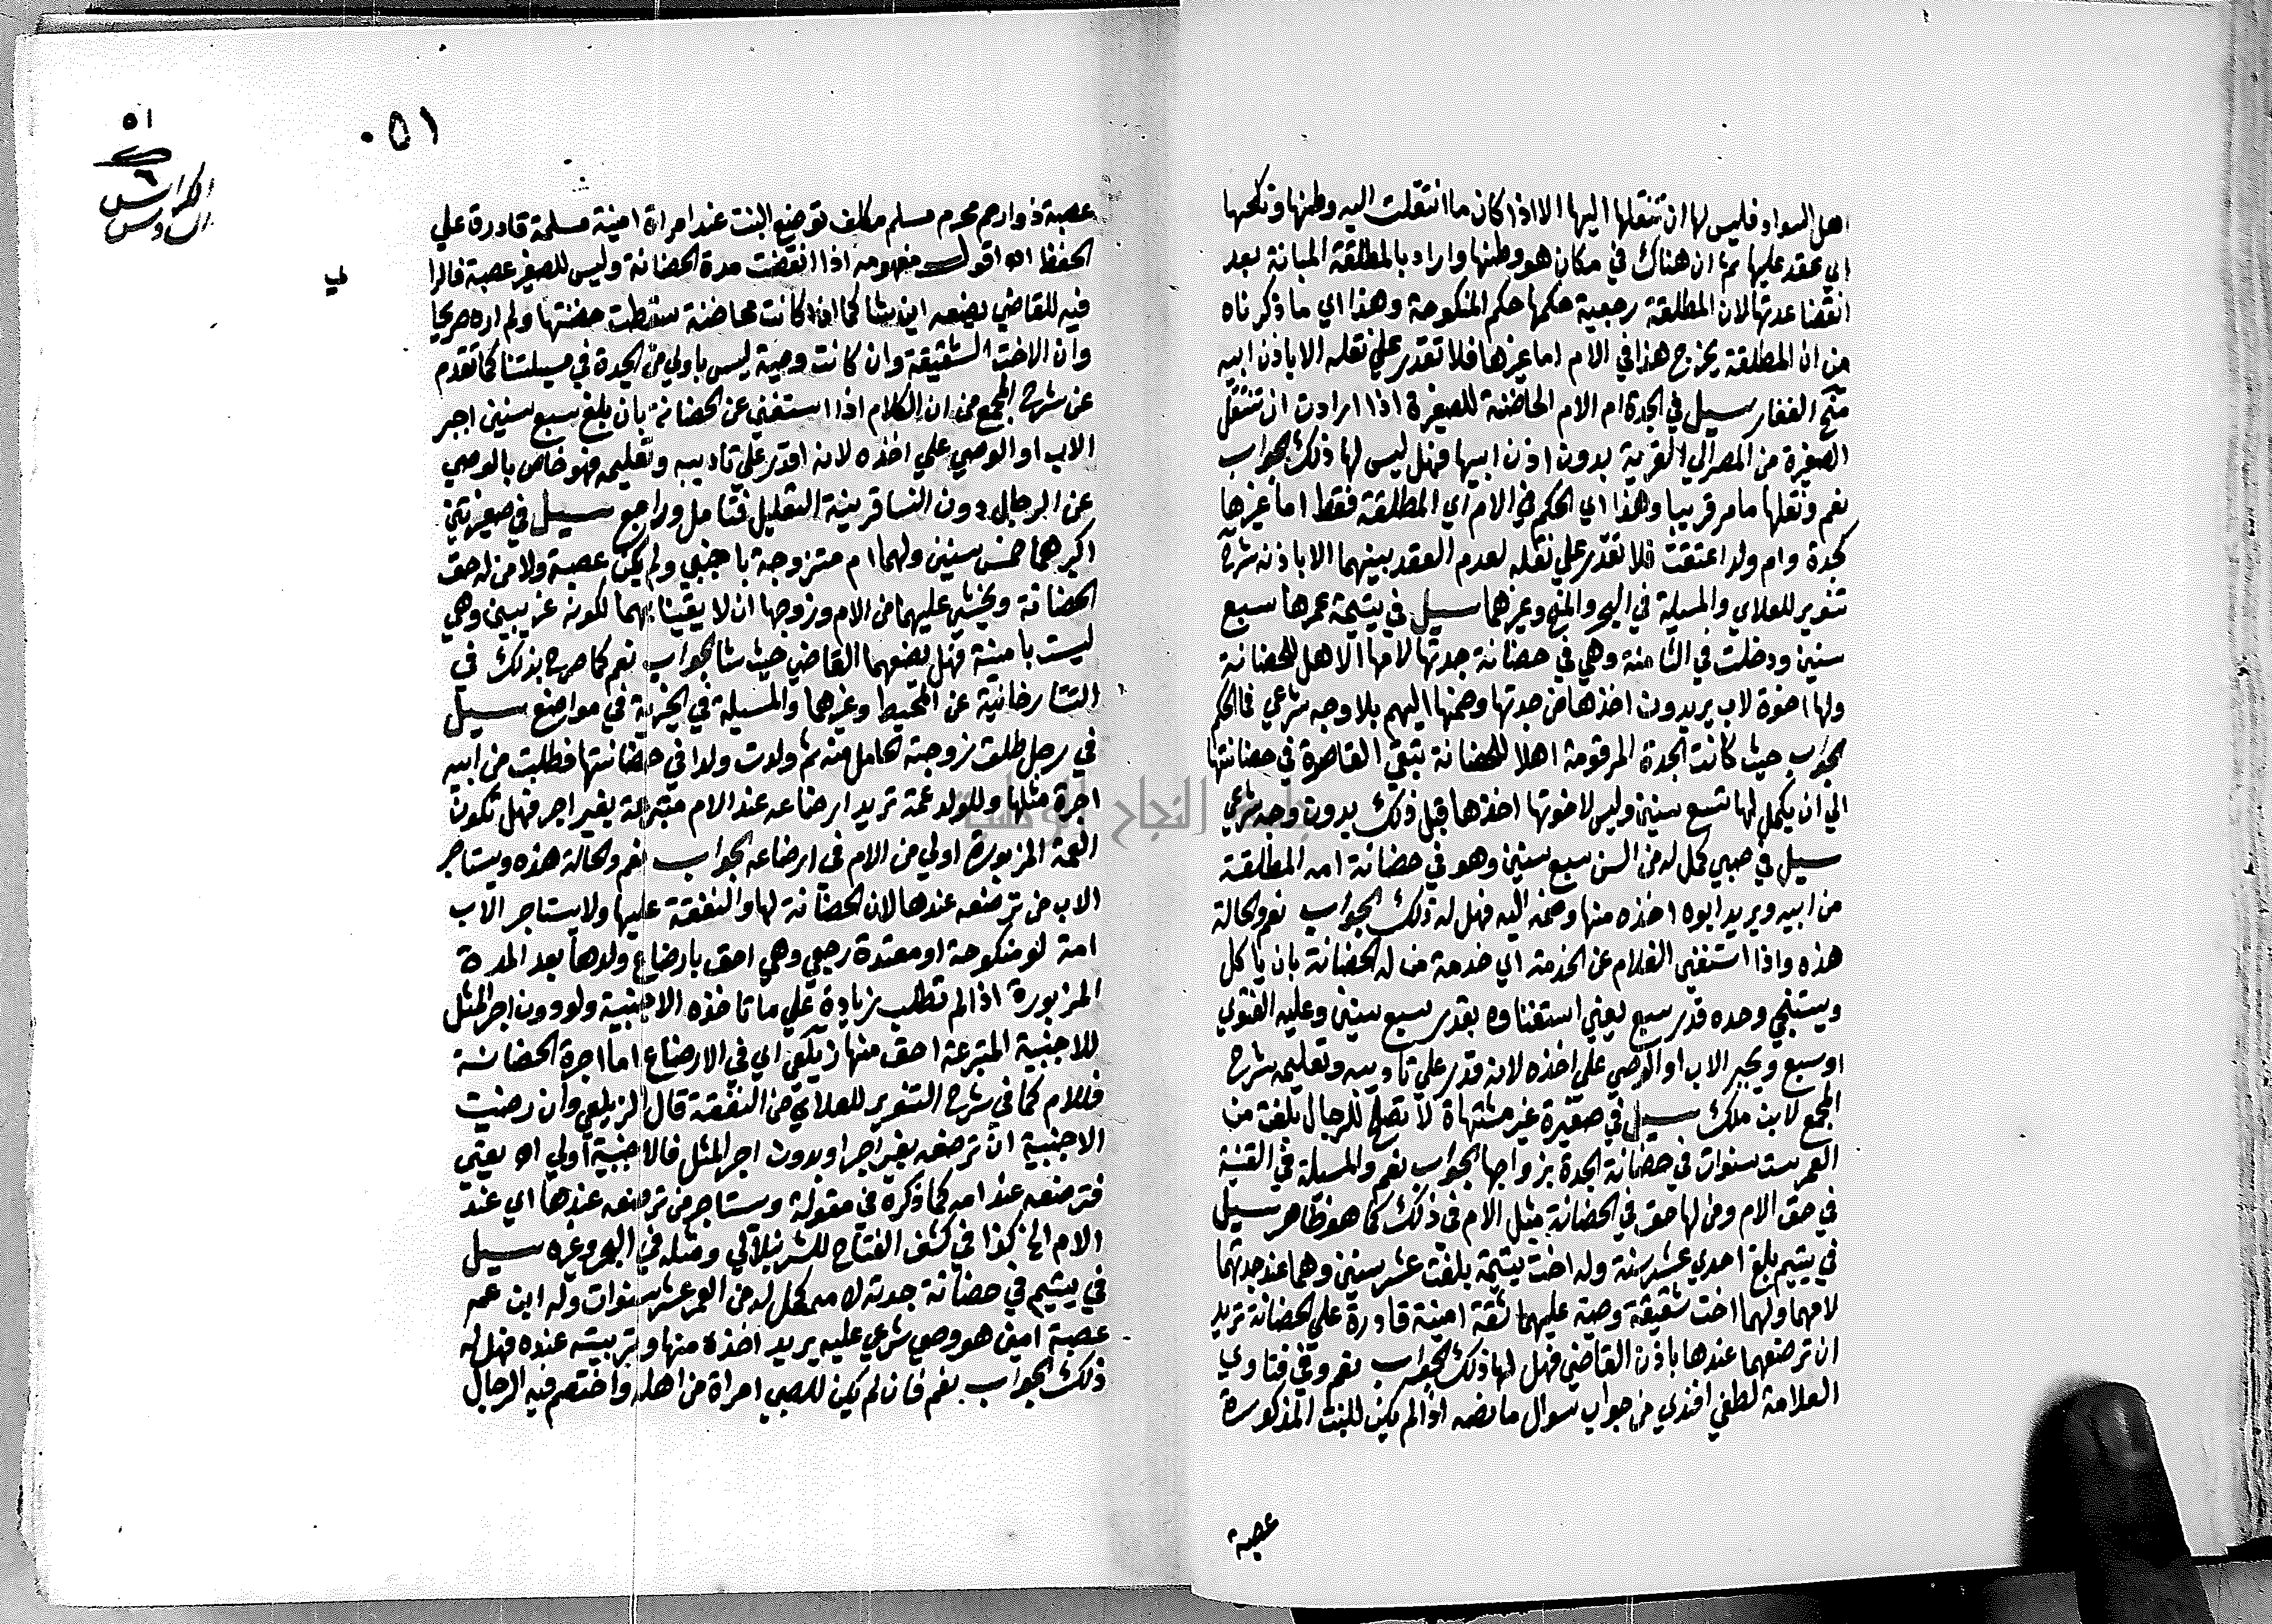 اهل السواد فليس لها ان تنقلها اليها الا اذا كان ما انتقلت اليه وطنها ونكحها
اي عقد عليها ثم ان هناك في مكان هو وطنها واراد بالمطلقة المبانة بعد
انقضا عدتها لان المطلقة رجعية حكمها حكم المنكوحة وهذا اي ما ذكرناه
من ان المطلقة يخرج هذا في الام اما غيرها فلا تقدر علي نقله الا باذن ابيه
منح الغفار سيل في الجدة ام الام الحاضنة للصغيرة اذا ارادت ان تنتقل
الصغيرة من المصر الي القرية بدون اذن ابيها فهل ليس لها ذلك الجواب
نعم ونقلها ما مر قريبا وهذا اي الحكم في الام اي المطلقة فقط اما غيرها
كجدة وام ولد اعتقت فلا تقدر علي نقله لعدم العقد بينهما الا باذنه شرح
تنوير للعلاي والمسيلة في البحر والمنح وغيرهما سيل في يتيمة عمرها سبع
سنين ودخلت في الثامنة وهي في حضانة جدتها لامها الاهل للحضانة
ولها اخوة لاب يريدون اخذها من جدتها وضمها اليهم بلا وجه شرعي فما الحكم
الجواب حيث كانت الجدة المرقومة اهلا للحضانة تبقي القاصرة في حضانتها
الي ان يكمل لها تسع سنين وليس لاخوتها اخذها قبل ذلك بدون وجه شرعي
سيل في صبي كمل له من السن سبع سنين وهو في حضانة امه المطلقة
من ابيه ويريد ابوه اخذه منها وضمه اليه فهل له ذلك الجواب نعم والحالة
هذه واذا استغني الغلام عن الخدمة اي خدمة من له الحضانة بان ياكل
ويستنجي وحده قدر سبع يعني استغناوه بقدر سبع سنين وعليه الفتوي
اوسبع ويجبر الاب او الوصي علي اخذه لانه قدر علي تاديبه وتعليمه شرح
المجمع لابن ملك سيل في صغيرة غير مشتهاة لا تصلح للرجال بلغت من
العمر ست سنوات في حضانة الجدة بزواجها الجواب نعم والمسيلة في القنية
في حق الام ومن لها حق في الحضانة مثل الام في ذلك كما هو ظاهر سيل
في يتيم بلغ احدي عشر سنة وله اخت يتيمة بلغت عشر سنين وهما عند جدتهما
لامهما ولهما اخت شقيقة وصية عليهما ثقة امينة قادرة علي الحضانة تريد
ان ترضعهما عندها باذن القاضي فهل لها ذلك الجواب نعم وفي فتاوي
العلامة لطفي افندي من جواب سوال ما نصه اذا لم يكن للبنت المذكورة
عصبة
٥١
٠٥١
٦
الكراس
السادس
عصبة ذوا رحم محرم مسلم مكلف توضع البنت عند امراة امينة مسلمة قادرة علي
الحفظ اه اقول مفهومه اذا انقضت مدة الحضانة وليس للصغير عصبة فالرا
ي
فيه للقاضي يضعه اين شا كما اذا كانت محاضنة سقطت حضنتها ولم اره صريحا
وان الاخت الشقيقة وان كانت وصية ليس باولي من الجدة في مسيلتنا كما تقدم
عن شرح المجمع من ان الكلام اذا استغني عن الحضانة بان بلغ سبع سنين اجبر
الاب او الوصي علي اخذه لانه اقدر علي تاديبه وتعليمه فهو خاص بالوصي
عن الرجال دون النسا قرينة التعليل فتامل وراجع سيل في صغيرتين
اكبرهما خمس سنين ولهما ام متزوجة باجنبي ولم يكن عصبة ولا من له حق
الحضانة ويخشي عليهما من الام وزوجها ان لا يقيتا بهما لكونه غريبين وهي
ليست بامينة فهل يضعهما القاضي حيث شا الجواب نعم كما صرح بذلك في
التتارخانية عن المحيط وغيرهما والمسيلة في الخيرية في مواضع سيل
في رجل طلق زوجته الحامل منه ثم ولدت ولدا في حضانتها فطلبت من ابيه
اجرة مثلها وللولد عمة تريد ارضاعه عند الام متبرعة بغير اجر فهل تكون
العمة المزبورة اولي من الام في ارضاعه الجواب نعم والحالة هذه ويستاجر
الاب من ترضعه عندها لان الحضانة لها والنفقة عليها ولا يستاجر الاب
امه لو منكوحة او معتدة رجعي وهي احق بارضاع ولدها بعد المدة
المزبورة اذا لم تطلب زيادة علي ما تاخذه الاجنبية ولو دون اجر المثل
للاجنبية المتبرعة احق منها زيلعي اي في الارضاع اما اجرة الحضانة
فللام كما في شرح التنوير للعلاي من النفقة قال الزيلعي وان رضيت
الاجنبية ان ترضعه بغير اجر او بدون اجر المثل فالاجنبية اولي اه يعني
فترضعه عند امه كما ذكره في مقولة وستاجر من ترضعه عندها اي عند
الام الخ كذا في كشف القناع للشرنبلالي ومثله في البحر وغيره سيل
في يتيم في حضانة جدته لامه كمل له من العمر عشر سنوات وله ابن عم
عصبة امين هو وصي شرعي عليه يريد اخذه منها وتربيته عنده فهل له
ذلك الجواب نعم فان لم يكن للصبي امراة من اهله واختصم فيه الرجال